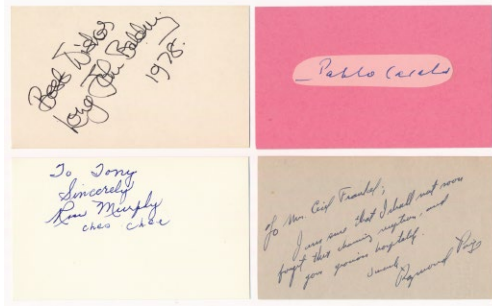 Best Wishes
Long John Baldry
1978.
Pablo Casals
To Tony
Sincerely
Rose Murphy
chee chee
To Mrs. Cecil Frankel;
I am sure that I shall not soon
forget this charming reception, and
your gracious hospitality.
Raymond Paige